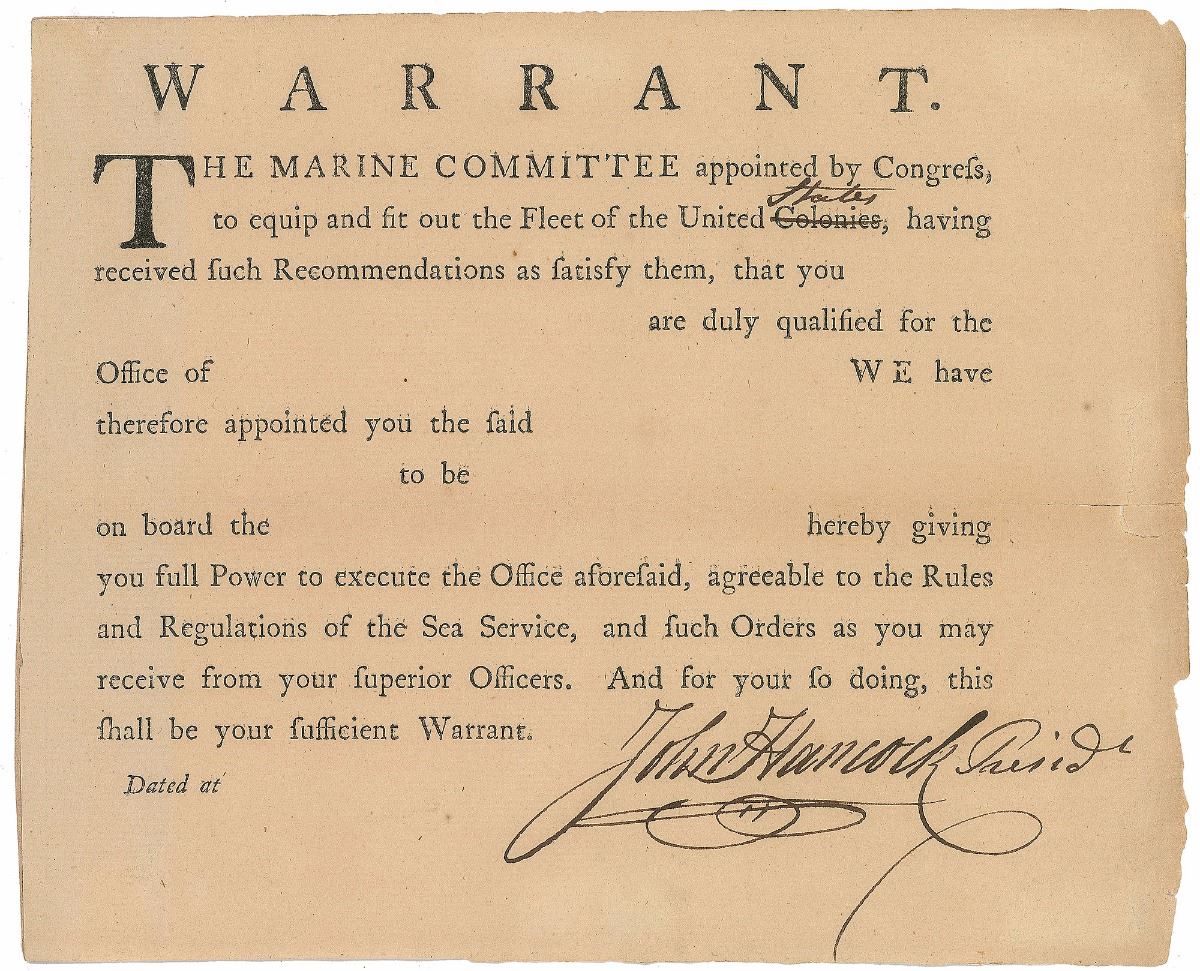 WARRANT.
THE MARINE COMMITTEE appointed by Congreſs,
States
to equip and fit out the Fleet of the United Colonies, having
received ſuch Recommendations as ſatisfy them, that you
are duly qualified for the
Office of WE have
therefore appointed you the ſaid
to be
on board the hereby giving
you full Power to execute the Office aforeſaid, agreeable to the Rules
and Regulations of the Sea Service, and ſuch Orders as you may
receive from your ſuperior Officers. And for your ſo doing, this
ſhall be your ſufficient Warrant.
John Hancock Presidt
Dated at